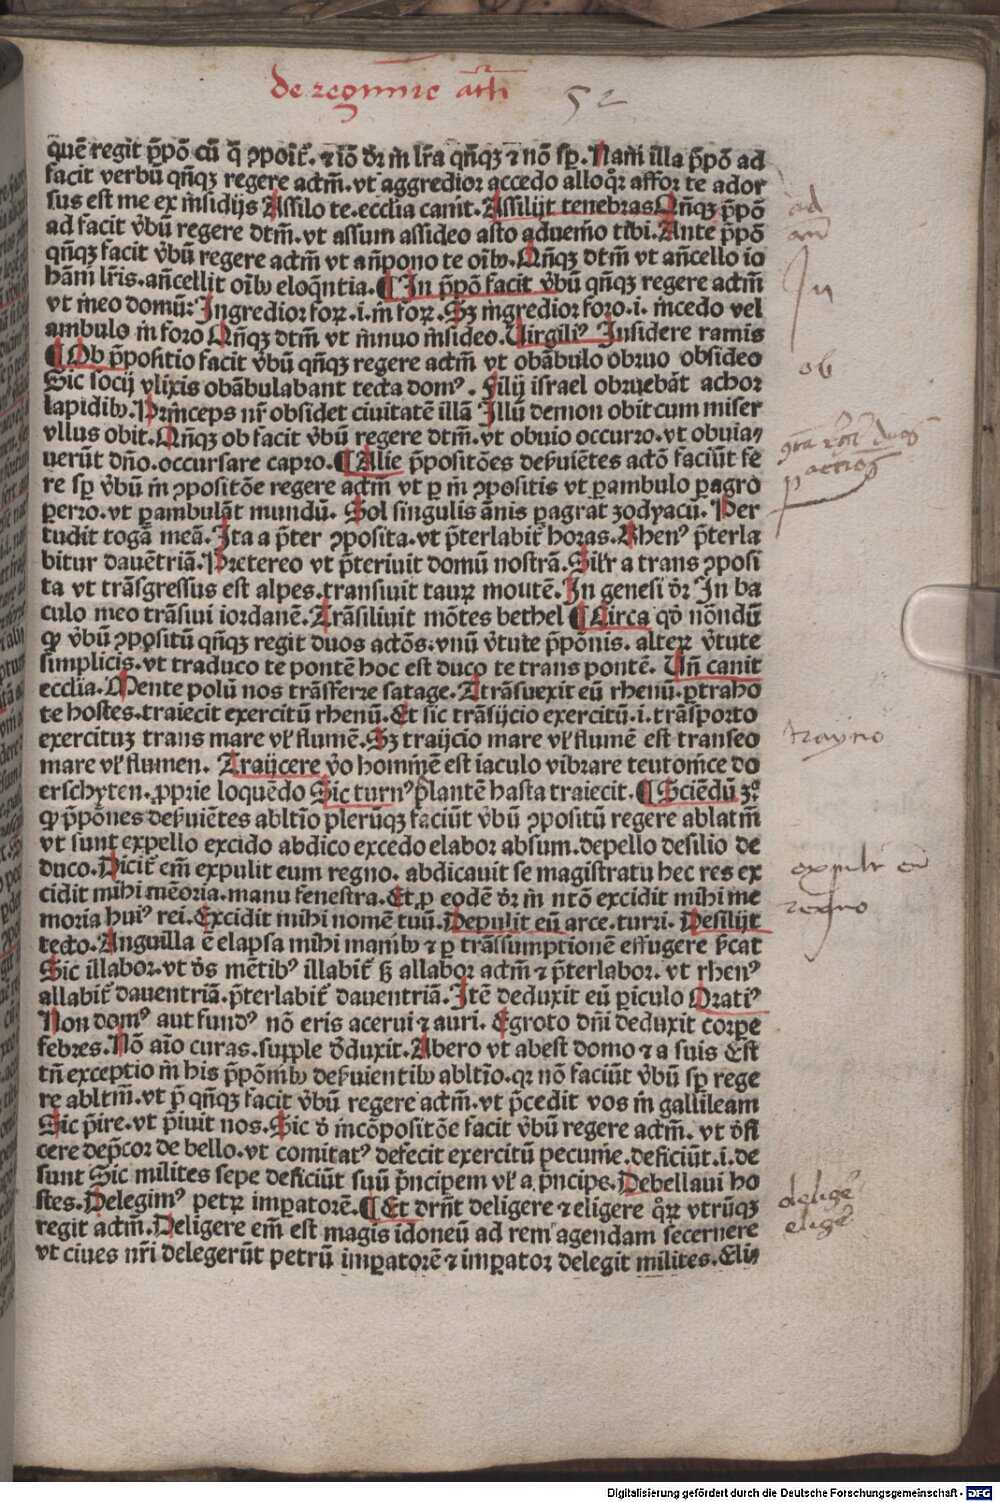 de regimine acti 52
quē regit p̄pō cū q̄ ↄpoit̄. ⁊ iō dr̄ in lr̄a qn̄qꝫ ⁊ nō sp̄. Nam illa p̄pō ad
facit verbū qn̄qꝫ regere actm̄. vt aggredior accedo alloqr̄ affor te ador
sus est me ex insidijs Assilo te. ecclia canit. Assilijt tenebras Qn̄qꝫ p̄pō
ad facit v̄bū regere dtm̄. vt assum assideo asto aduenio tibi. Ante p̄pō
qn̄qꝫ facit v̄bū regere actm̄ vt an̄pono te oībꝰ. Qn̄qꝫ dtm̄ vt an̄cello io
hām lr̄is. an̄cellit oībꝰ eloqn̄tia. ¶ In p̄pō facit v̄bū qn̄qꝫ regere actm̄
vt ineo domū: Ingredior foꝝ .i. in foꝝ. Sꝫ ingredior foro .i. incedo vel
ambulo in foro Qn̄qꝫ dtm̄ vt innuo insideo. Virgiliꝰ Insidere ramis
¶ Ob p̄positio facit v̄bū qn̄qꝫ regere actm̄ vt obābulo obruo obsideo
Sic socij vlixis obābulabant tecta domꝰ. Filij israel obruebāt achor
lapidibꝰ. Princeps nr̄ obsidet ciuitatē illā Illū demon obit cum miser
vllus obit. Qn̄qꝫ ob facit v̄bū regere dtm̄. vt obuio occurro. vt obuia⸗
uerūt dn̄o. occursare capro. ¶ Alie p̄positōes deſuiētes actō faciūt fe
re sp̄ v̄bū in ↄpositōe regere actm̄ vt ꝑ in ↄpositis vt ꝑambulo ꝑagro
ꝑerro. vt ꝑambulāt mundū. Sol singulis ānis ꝑagrat zodyacū. Per
tudit togā meā. Ita a p̄ter ↄposita. vt p̄terlabit̄ horas. Rhenꝰ p̄terla
bitur dauētriā. Pretereo vt p̄teriuit domū nostrā. Silr̄ a trans ↄposi
ta vt trāsgressus est alpes. transiuit tauꝝ montē. In genesi dr̄ In ba
culo meo trāsiui iordanē. Trāsiliuit mōtes bethel ¶ Circa qd̄ nōndū
ꝙ v̄bū ↄpositū qn̄qꝫ regit duos actōs. vnū v̄tute p̄pōnis. alteꝝ v̄tute
simplicis. vt traduco te pontē hoc est duco te trans pontē. Vn̄ canit
ecclia. Mente polū nos trāsferre satage. Trāsuexit eū rhenū. ꝑtraho
te hostes. traiecit exercitū rhenū. Et sic trāsijcio exercitū .i. trāsporto
exercituꝫ trans mare vl̄ flumē. Sꝫ traijcio mare vl̄ flumē est transeo
mare vl̄ flumen. Traijcere v̄o hominē est iaculo vibrare teutonice do
erschyten. ꝓprie loquēdo Sic turnꝰ p̄lantē hasta traiecit. ¶ Sciēdū ꝫͦ
ꝙ p̄pōnes deſuiētes abltīo plerūqꝫ faciūt v̄bū ↄpositū regere ablatm̄
vt sunt expello excido abdico excedo elabor absum. depello desilio de
duco. Dicit̄ em̄ expulit eum regno. abdicauit se magistratu hec res ex
cidit mihi mēoria. manu fenestra. Et ꝓ eodē dr̄ in ntō excidit mihi me
moria huiꝰ rei. Excidit mihi nomē tuū. Depulit eū arce. turri. Desilijt
tecto. Anguilla ē elapsa mihi manibꝰ ⁊ ꝑ trāssumptionē effugere p̄cat
Sic illabor. vt d̄s mētibꝰ illabit̄ sꝫ allabor actm̄ ⁊ p̄terlabor. vt rhenꝰ
allabit̄ dauentriā. p̄terlabit̄ dauentriā. Itē deduxit eū ꝑiculo Oratiꝰ
Non domꝰ aut fundꝰ nō eris acerui ⁊ auri. Egroto dn̄i deduxit corpe
febres. Nō aīo curas. supple d̄duxit. Abero vt abest domo ⁊ a suis Est
tn̄ exceptio in his p̄pōnibꝰ deſuientibꝰ abltīo. qꝛ nō faciūt v̄bū sp̄ rege
re abltm̄. vt p̄ qn̄qꝫ facit v̄bū regere actm̄. vt p̄cedit vos in gallileam
Sic p̄ire. vt p̄iuit nos. Sic d̄ incōpositōe facit v̄bū regere actm̄. vt d̄fi
cere dep̄cor de bello. vt comitatꝰ defecit exercitū pecunie. deficiūt .i. de
sunt Sic milites sepe deficiūt suū p̄ncipem vl̄ a p̄ncipe. Debellaui ho
stes. Delegimꝰ petꝝ imꝑatorē. ¶ Et drn̄t deligere ⁊ eligere qr̄ꝝ vtrūqꝫ
regit actm̄. Deligere em̄ est magis idoneū ad rem agendam secernere
vt ciues nr̄i delegerūt petrū imꝑatorē ⁊ imꝑator delegit milites. Eli⸗
ad
an̄
In
ob
trayno
expulit eū
regno
deligē
eligē
Digitalisierung gefördert durch die Deutsche Forschungsgemeinschaft - DFG